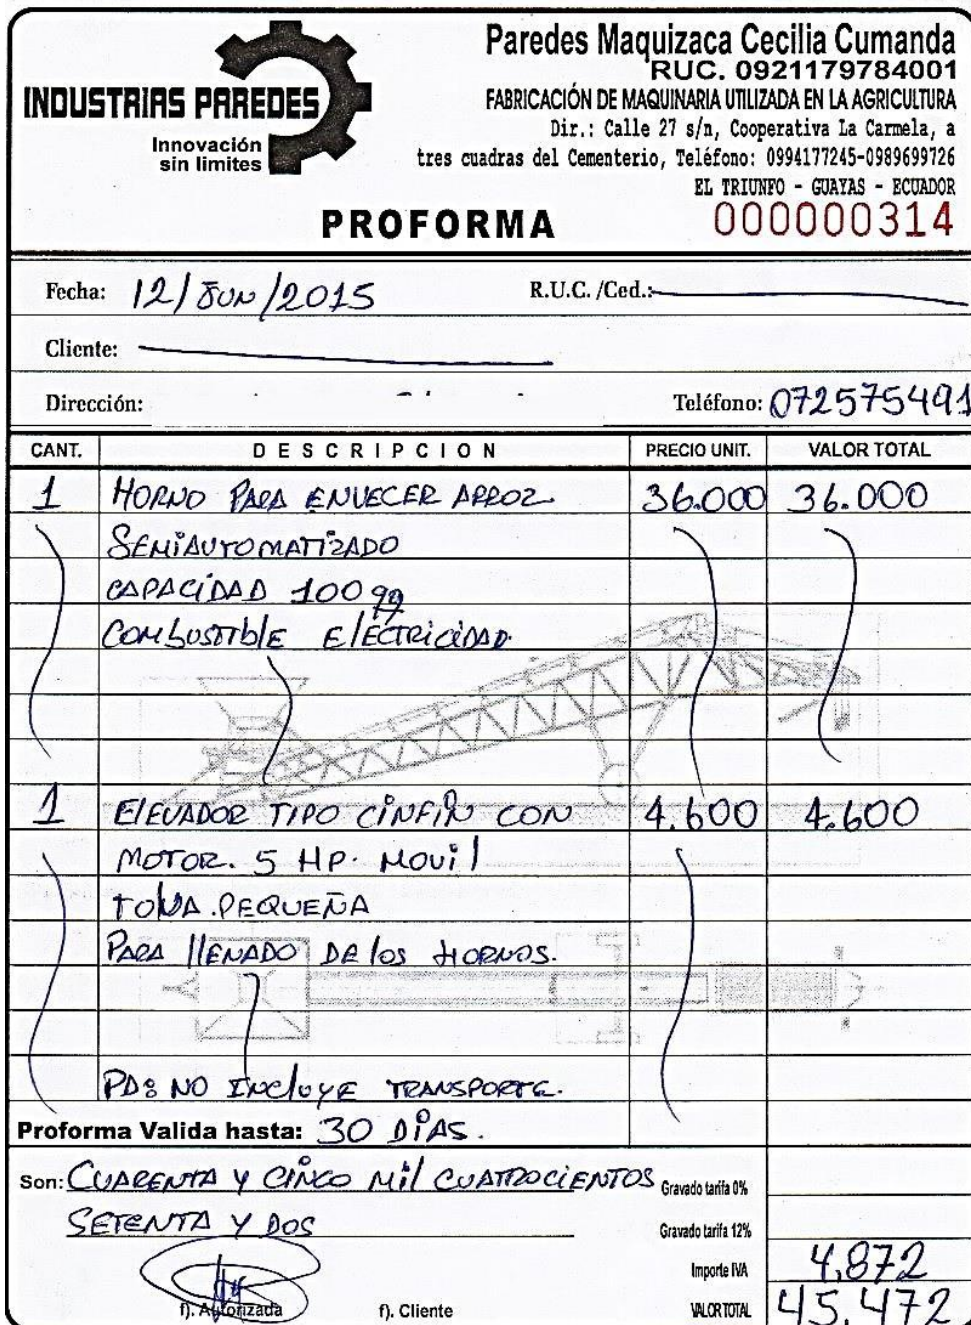 INDUSTRIAS PAREDES
Innovación
sin limites
Paredes Maquizaca Cecilia Cumanda
RUC. 0921179784001
FABRICACIÓN DE MAQUINARIA UTILIZADA EN LA AGRICULTURA
Dir.: Calle 27 s/n, Cooperativa La Carmela, a
tres cuadras del Cementerio, Teléfono: 0994177245-0989699726
EL TRIUNFO - GUAYAS - ECUADOR
PROFORMA 000000314
Fecha: 12/JUN/2015 R.U.C. /Ced.:
Cliente:
Dirección: Teléfono: 072575491
CANT. DESCRIPCION PRECIO UNIT. VALOR TOTAL
1 HORNO PARA ENVECER ARROZ. 36.000 36.000
SEMIAUTOMATIZADO
CAPACIDAD 100 qq
COMBUSTIBLE ELECTRICIDAD.
1 ELEVADOR TIPO CINFIN CON 4.600 4.600
MOTOR. 5 HP. MOVIL
TOLVA PEQUEÑA
PARA LLENADO DE LOS HORNOS.
PD: NO INCLUYE TRANSPORTE.
Proforma Valida hasta: 30 DIAS.
Son: CUARENTA Y CINCO MIL CUATROCIENTOS Gravado tarifa 0%
SETENTA Y DOS Gravado tarifa 12%
Importe IVA 4,872
f). Autorizada f). Cliente VALOR TOTAL 45.472